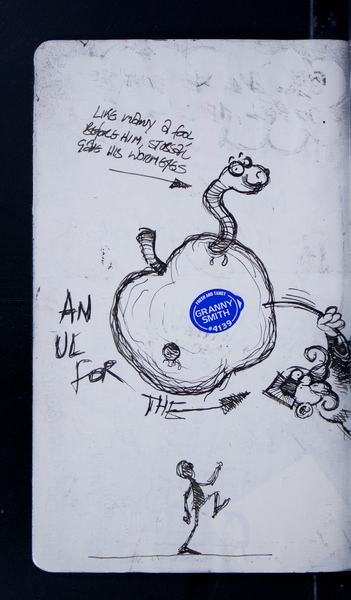 LIKE MANY A FOOL
BEFORE HIM,
GAVE HIS WORM EYES
FRESH AND TANGY
GRANNY
SMITH
#4139
AN
UL
FOR
THE